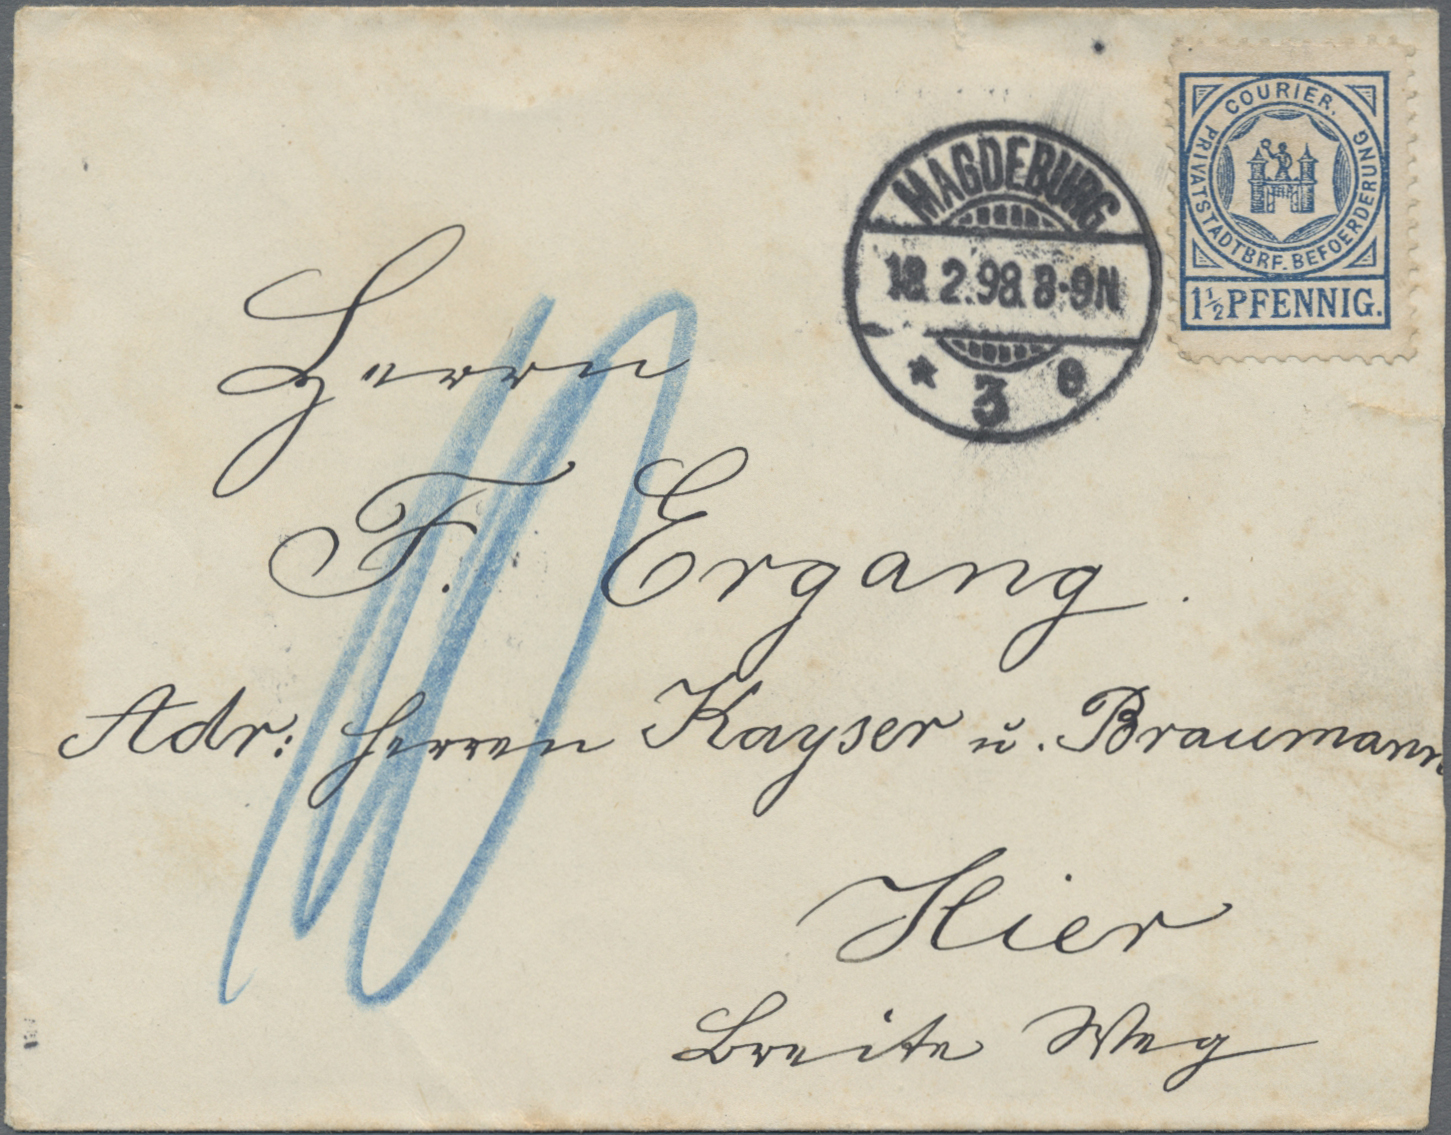 COURIER.
PRIVATSTADTBRF. BEFOERDERUNG
1 1/2 PFENNIG.
MAGDEBURG
18.2.98.8-9N
* 3 e
10
Herrn
F. Ergang.
Adr: Herren Kayser u. Braumann
Hier
Breite Weg